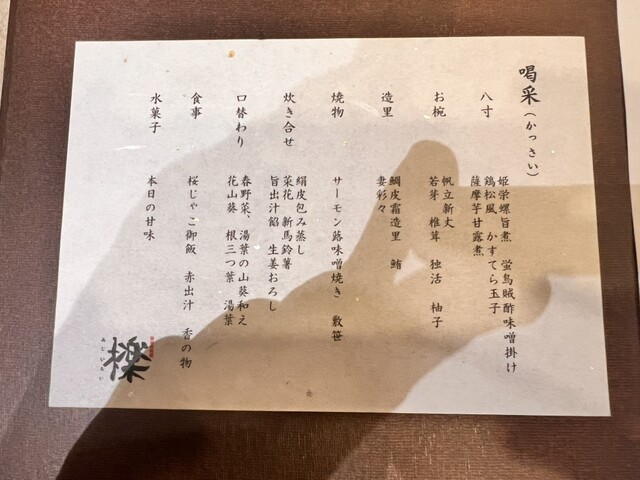 喝采(かっさい)
八寸
姫栄螺旨煮 蛍烏賊酢味噌掛け
鶏松風 かすてら玉子
薩摩芋甘露煮
お椀
帆立新丈
若芽 椎茸 独活 柚子
造里
鯛皮霜造里 鮪
妻彩々
焼物
サーモン蕗味噌焼き 敷笹
炊き合せ
絹皮包み蒸し
菜花 新馬鈴薯
旨出汁餡 生姜おろし
口替わり
春野菜、湯葉の山葵和え
花山葵 根三つ葉 湯葉
食事
桜じゃこ御飯 赤出汁 香の物
水菓子
本日の甘味